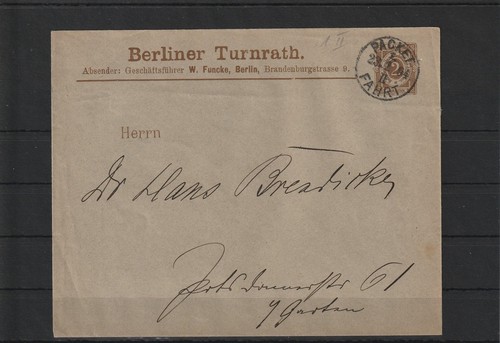 1 II
Berliner Turnrath.
Absender: Geschäftsführer W. Funcke, Berlin, Brandenburgstrasse 9.
PACKET
FAHRT
2
Herrn
Dr Hans
61
Garten